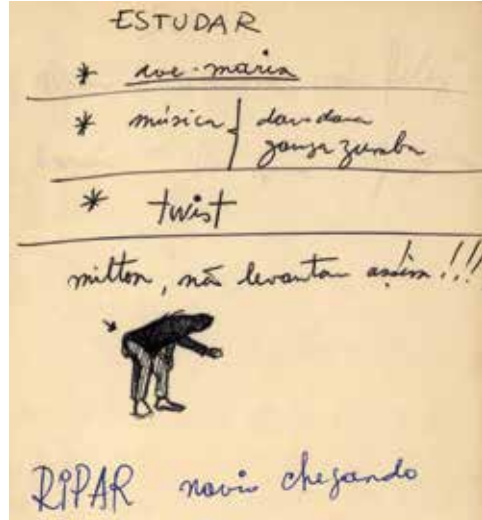 ESTUDAR
* ave-maria
* música { dara dara
ganga zumba
* twist
milton, não levantar assim!!!
RIPAR navio chegando